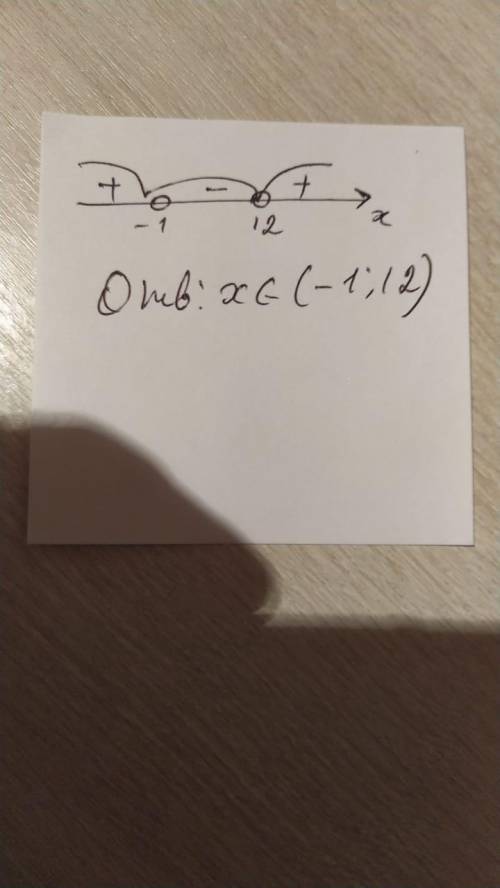 + - +
-1 12 x
Отв: x ∈ (-1; 12)